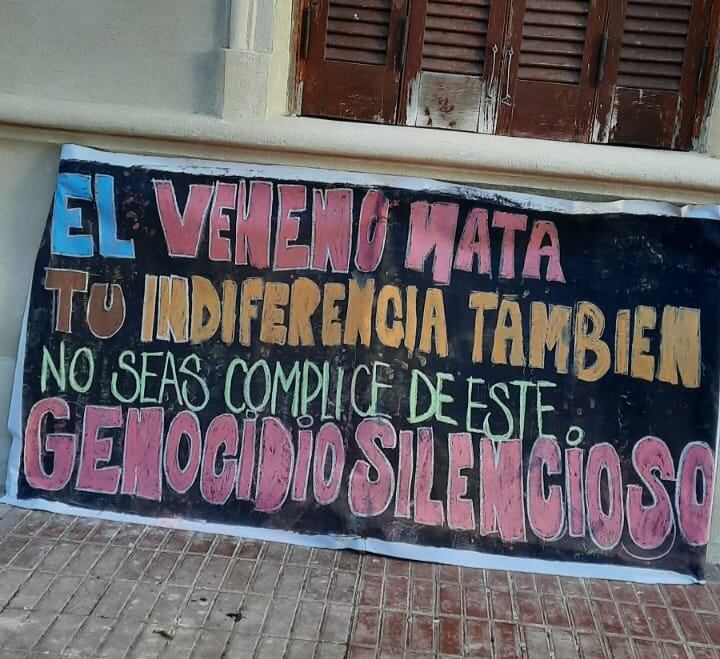 EL VENENO MATA
TU INDIFERENCIA TAMBIEN
NO SEAS COMPLICE DE ESTE
GENOCIDIO SILENCIOSO